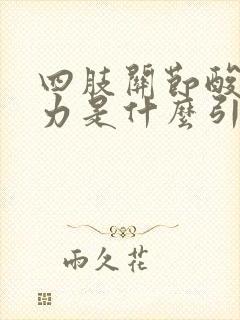 四肢關節酸
力是什麼引
雨久花